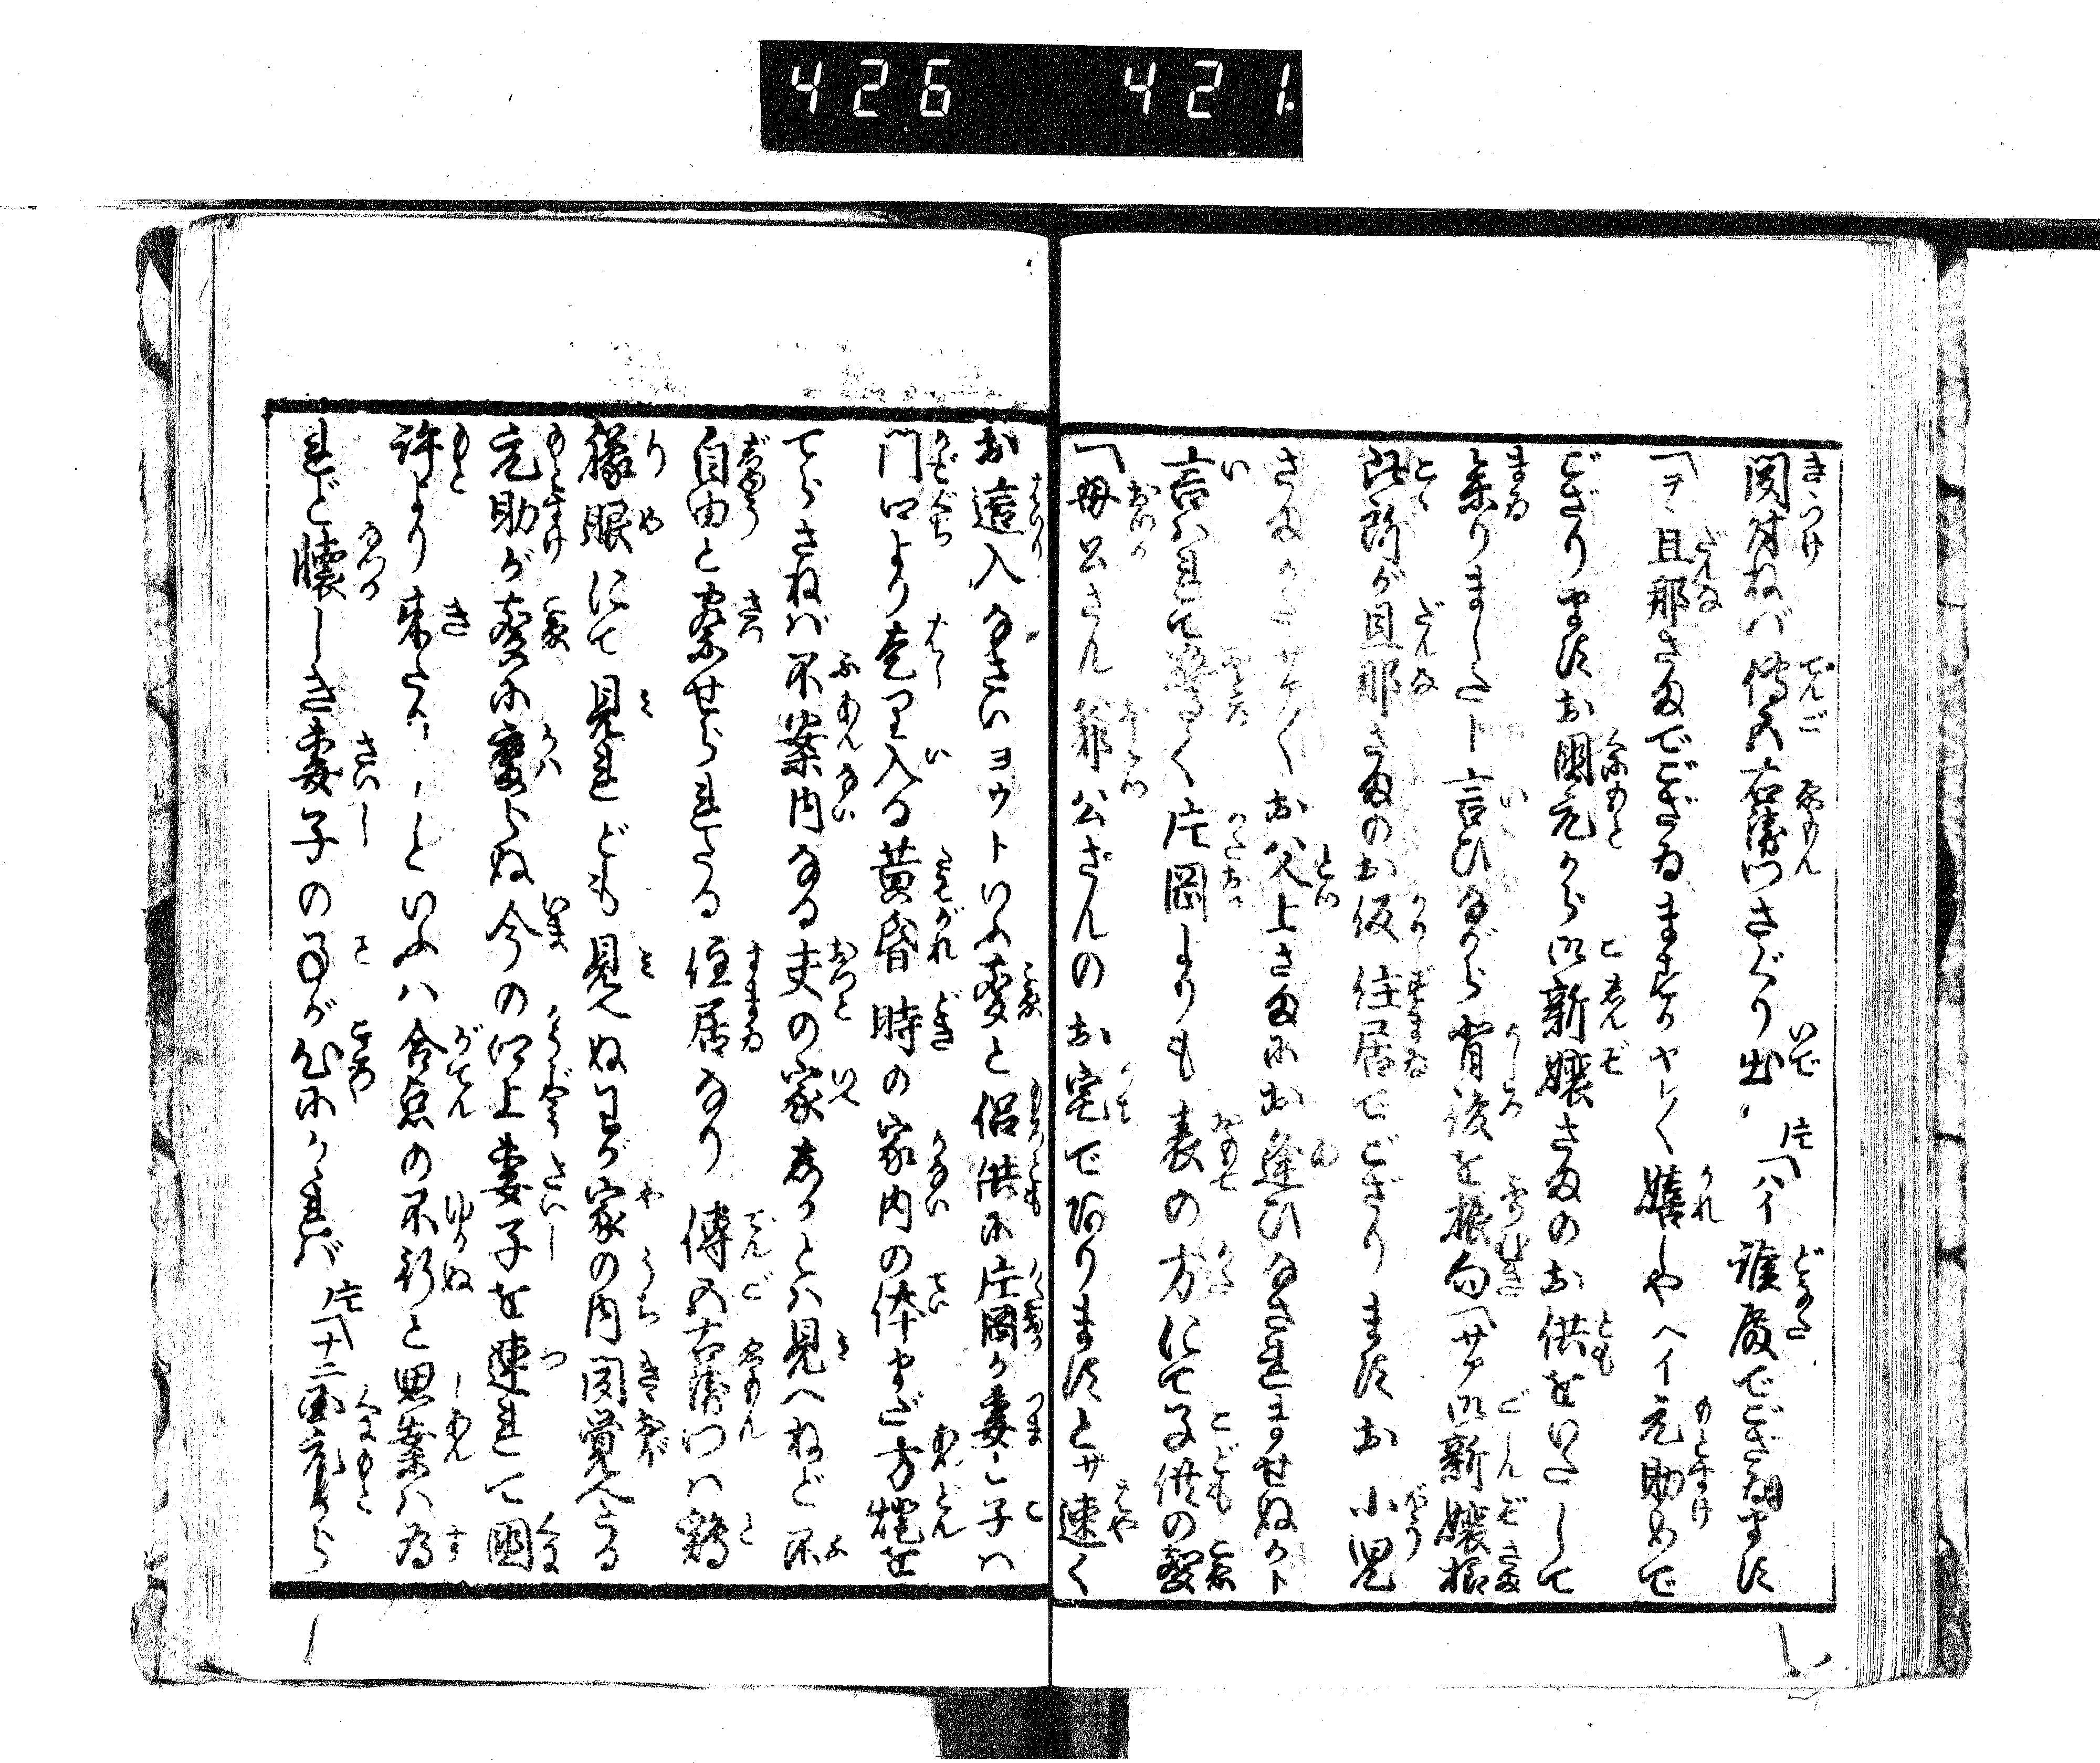 426 421
関付ねバ傳五右衛門さぐり出庄「ハイ誰殿でござゐます
「ヲヽ旦那さまでござゐますかヤレ〳〵嬉しやヘイ元助めで
ござります お國元から御新嬢さまのお供をいたして
参りましたト言ひながら背後を振向「サア御新嬢様
此所が旦那さまのお仮住居でござります お小児
さまがたサア〳〵お父上さまにお逢ひなされませぬかト
言はれて嬉しく片岡よりも表の方にて子供の声
「母公さん爺公さんのお宅で有りますとサ速く
お這入なさいヨウトいふ声と侶供に片岡が妻と子ハ
門口より走り入る黄昏時の家内の体まだ方燈を
てらさねば不案内なる夫の家あかとハ見へねど不
自由と察せられたる住居なり 傳五右衛門ハ鶏
朦眼にて見れども見へぬわが家の内聞覚へたる
元助が声に変らぬ今の口上妻子を連れて國
許より来たりしといふハ合点の不行と思案ハ為
れど懐しき妻子の事が心にかかれバ庄「ナニ國元から